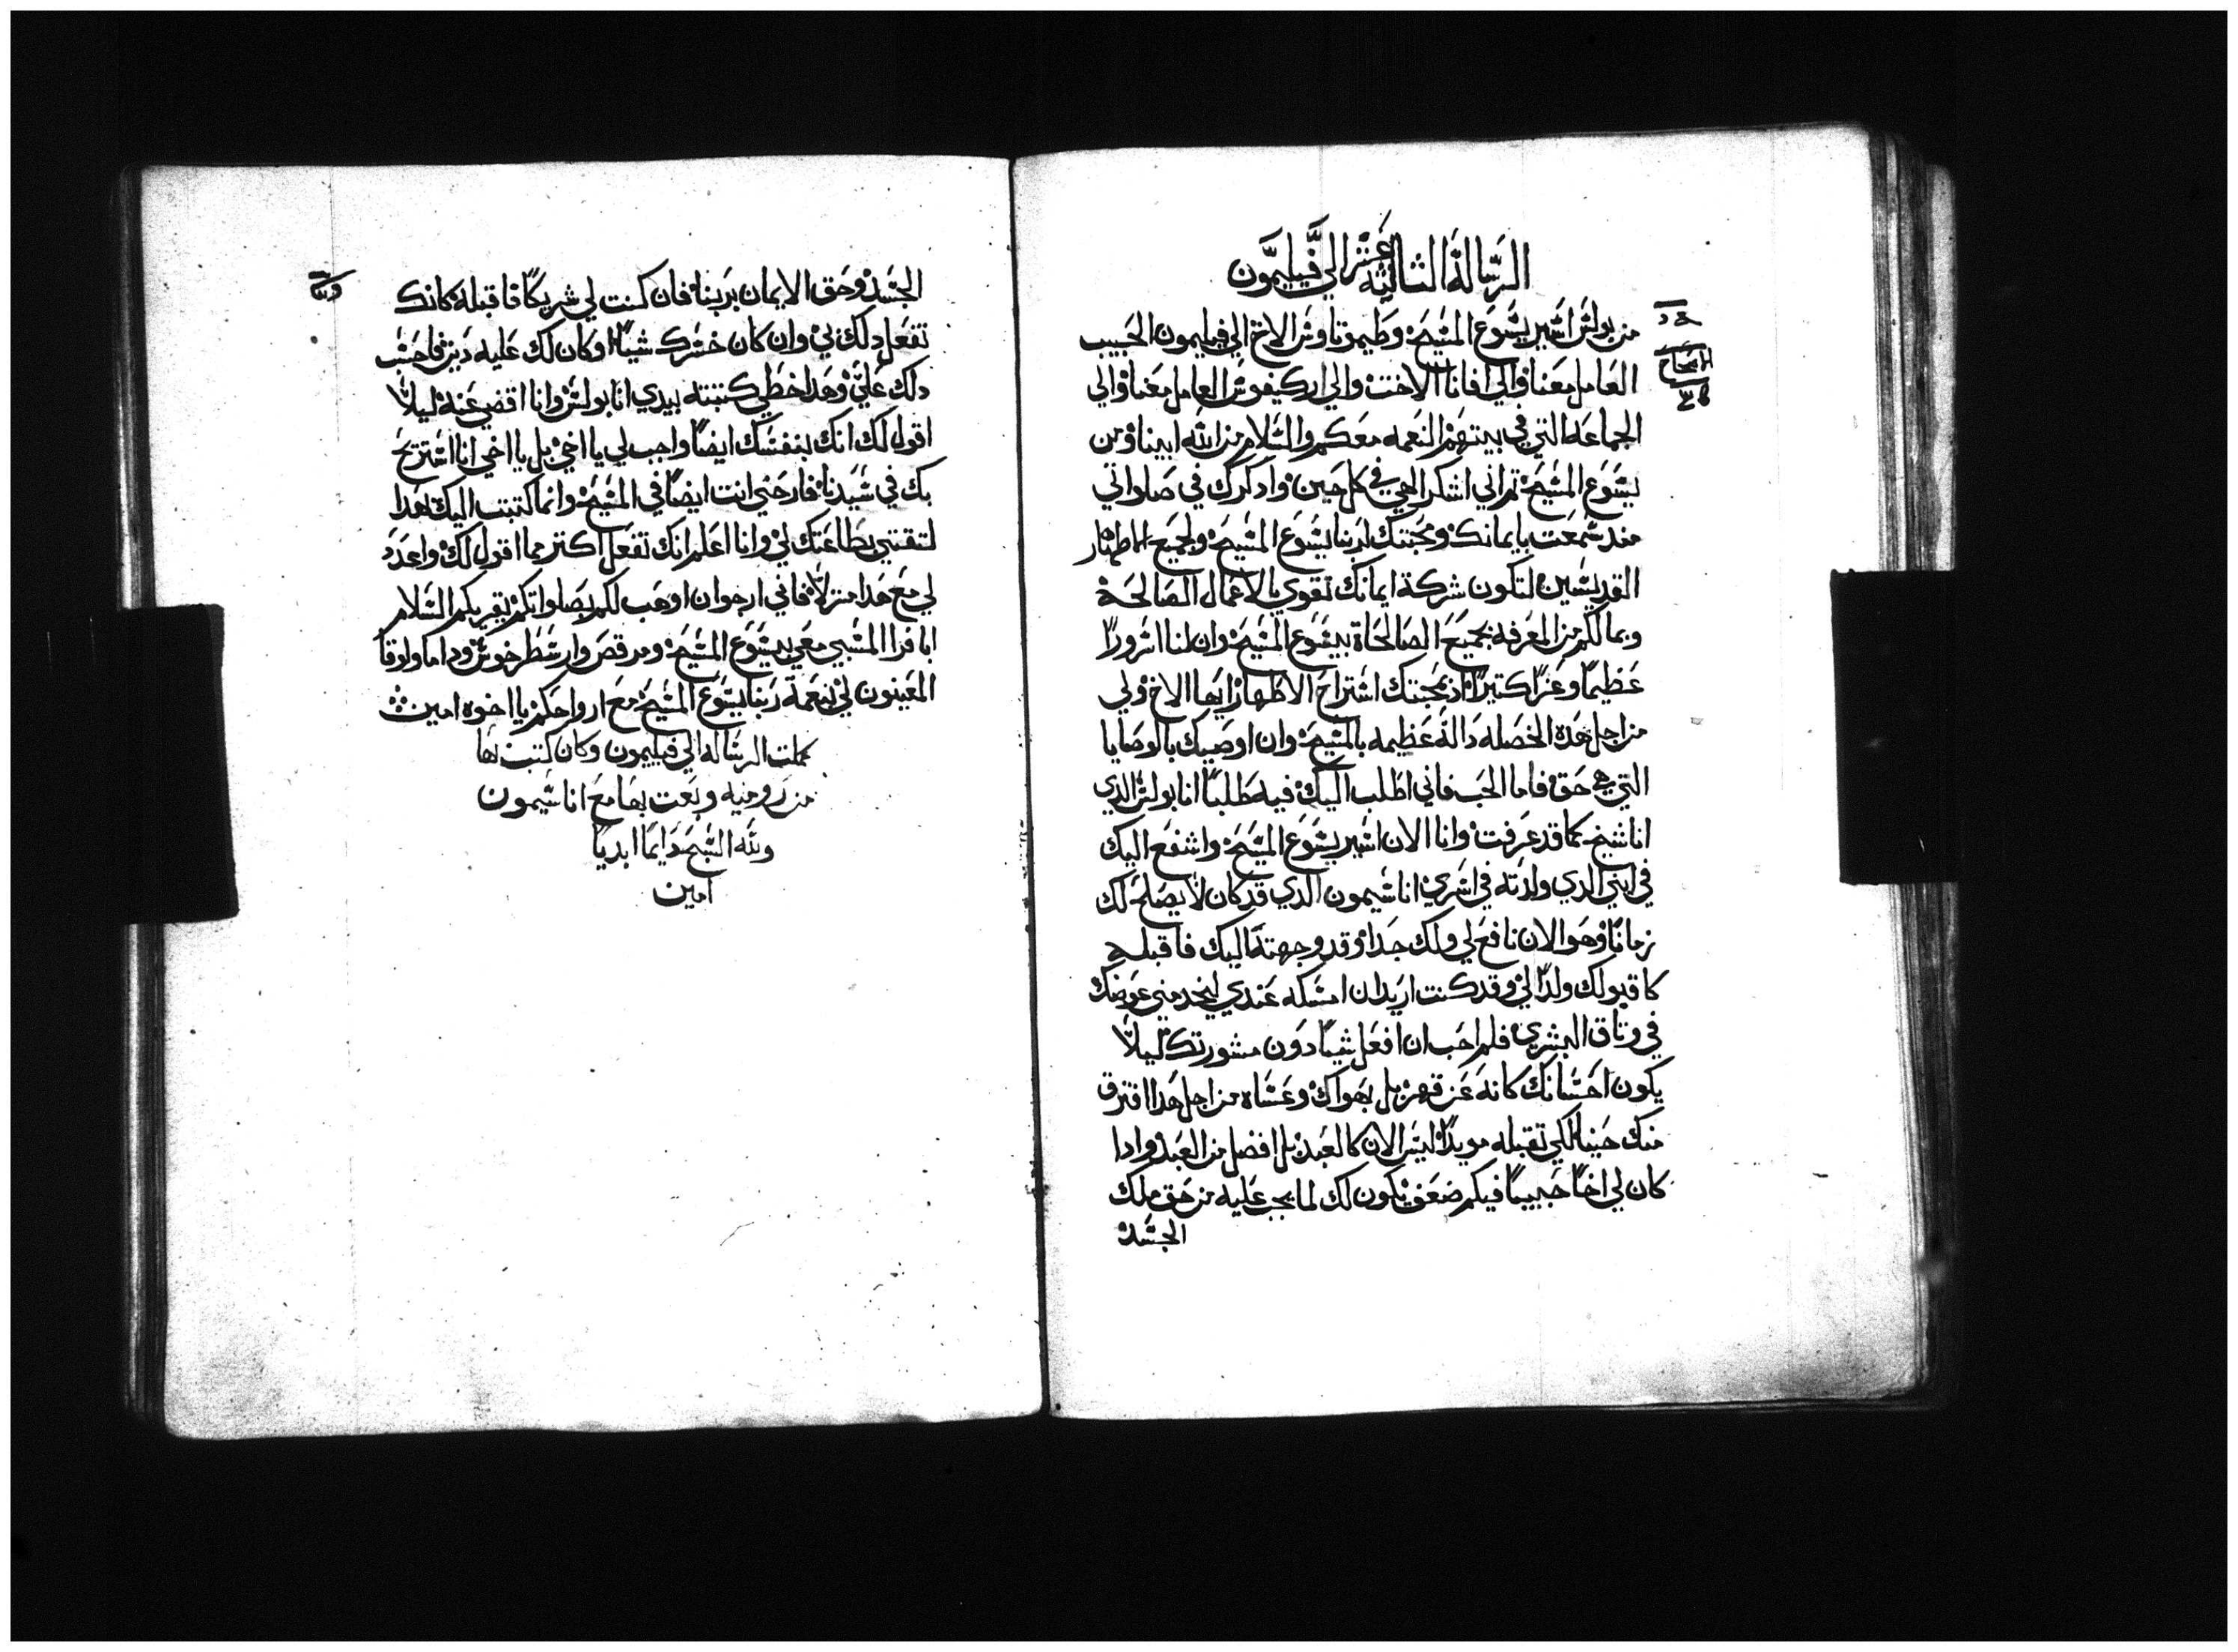 الرسالة الثالثة عشر الي فيليمون
من بولس اسير يسوع المسيح وطيموتاوس الاخ الي فيليمون الحبيب
العامل معنا والي افانا الاخت والي اركيفوس العامل معنا والي
الجماعه التي في بيتهم النعمه معكم والسلام من الله ابينا ومن
يسوع المسيح تم اني اشكر الهي في كل حين وادكرك في صلواتي
مند سمعت بايمانك ومحبتك لربنا يسوع المسيح ولجميع الاطهار
القديسين لتكون شركة ايمانك تقوي بالاعمال الصالحة
وبمالكم من المعرفه بجميع الصالحاة بيسوع المسيح وان لنا سرورا
عظيما وعزا كتيرا اذ بمحبتك استراح الاطهار ايها الاخ ولي
من اجل هده الخصله دالة عظيمه بالمسيح وان اوصيك بالوصايا
التي هي حق فاما الحب فاني اطلب اليك فيه طلبا انا بولس الدي
انا شيخ كما قد عرفت وانا الان اسير يسوع المسيح واشفع اليك
في ابني الدي ولدته في اسري اناسيمون الدي قد كان لا يصلح لك
زمانا وهو الان نافع لي ولك جدا وقد وجهته اليك فاقبله
كا قبولك ولدا لي وقد كنت اريد ان امسكه عندي ليخدمني عوضك
في وتاق البشري فلم احب ان افعل شيا دون مشورتك ليلا
يكون احسانك كانه عن قهر بل بهواك وعساه من اجل هدا افترق
منك حينا لكي تقبله موبدا ليس الان كالعبد بل افضل من العبد وادا
كان لي اخا حبيبا فيكم ضعف يكون لك لما يجب عليه من حق ملك
الجسد
الجسد وحق الايمان بربنا فان كنت لي شريكا فاقبله كانك
تفعل دلك بي وان كان خسرك شيا او كان لك عليه دين فاحسب
دلك علي وهدا خطي كتبته بيدي انا بولس وانا اقضي عنه ليلا
اقول لك انك بنفسك ايضا واجب لي يا اخي بل يا اخي انا استريح
بك في سيدنا فارحني انت ايضا في المسيح وانما كتبت اليك هدا
لتقتي بطاعتك لي وانا اعلم انك تفعل اكتر مما اقول لك واعدد
لي مع هدا منزلا فاني ارجوا ان اوهب لكم بصلواتكم يقريكم السلام
ابافرا المسبي معي بيسوع المسيح ومرقص وارسطرخوس وداما ولوقا
المعينون لي نعمة ربنا يسوع المسيح مع ارواحكم يا اخوه امين
كملت الرساله الي فيليمون وكان كتب بها
من روميه وبعت بها مع اناسيمون
ولله السبح دايما ابديا
امين